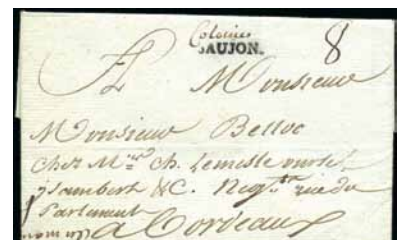 Colonies
SAUJON. 8
A Monsieur
Monsieur Belloc
Chez Mrs Ch. Lemesle
Lambert &C. Negts rue du
Parlement
a Bordeaux